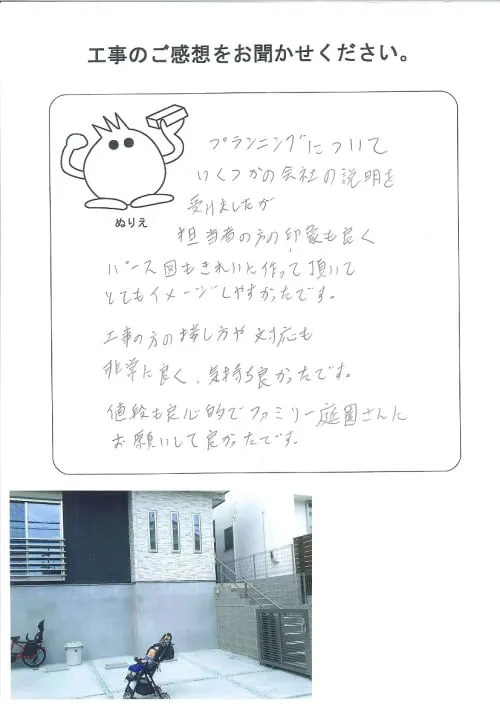 工事のご感想をお聞かせください。
プランニングについて
いくつかの会社の説明を
受けましたが
担当者の方の印象も良く
ぬりえ
パース図もきれいに作って頂いて
とてもイメージしやすかったです。
工事の方の接し方や対応も
非常に良く、気持ち良かったです。
値段も良心的でファミリー庭園さんに
お願いして良かったです。